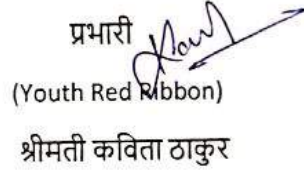 प्रभारी
(Youth Red Ribbon)
श्रीमती कविता ठाकुर